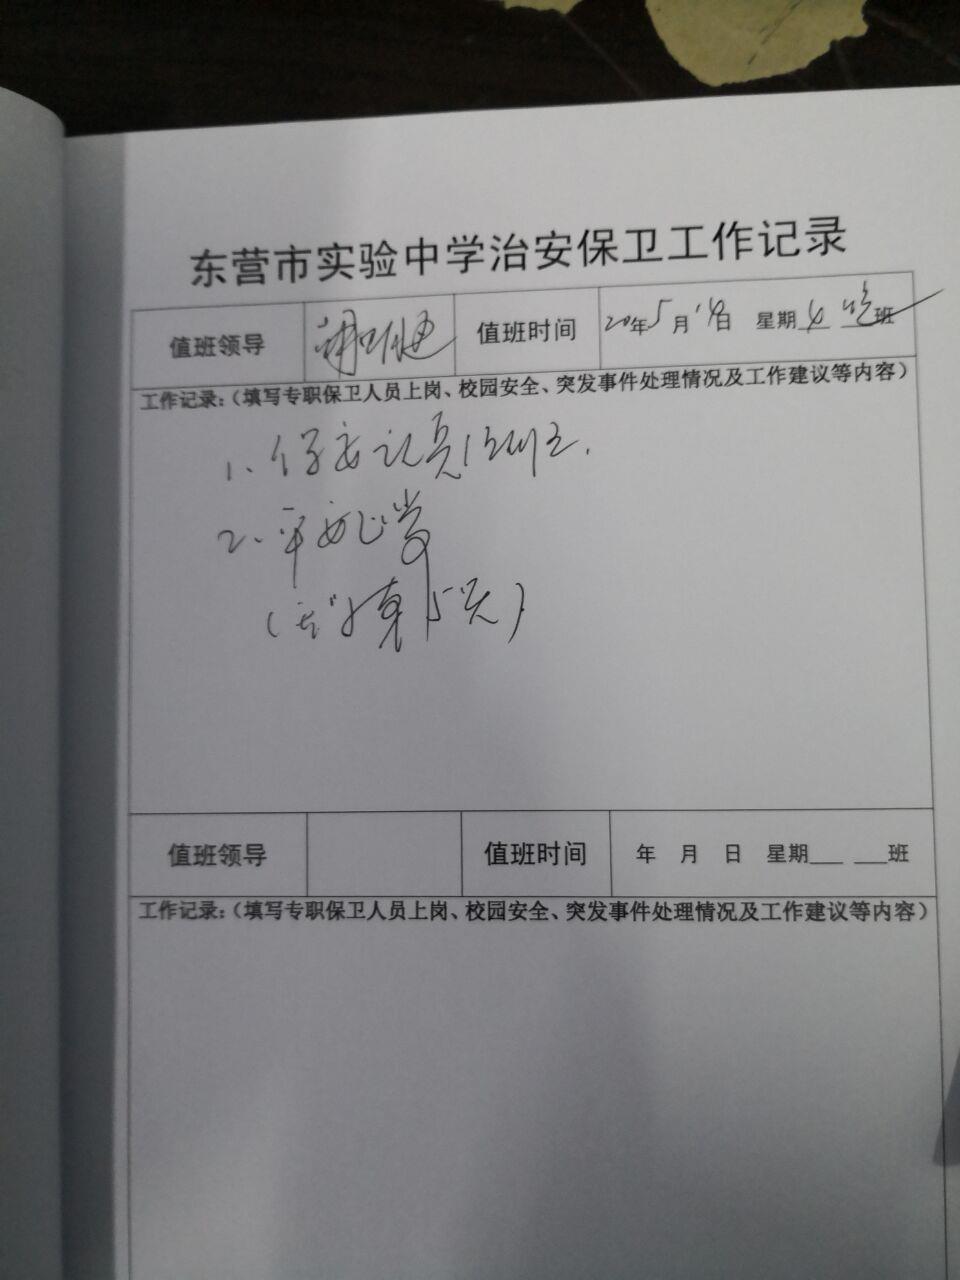 东营市实验中学治安保卫工作记录
值班领导 值班时间 20年5月 日 星期 班
工作记录：（填写专职保卫人员上岗、校园安全、突发事件处理情况及工作建议等内容）
1、保安认真
2、平安
值班领导 值班时间 年 月 日 星期___ ___班
工作记录：（填写专职保卫人员上岗、校园安全、突发事件处理情况及工作建议等内容）